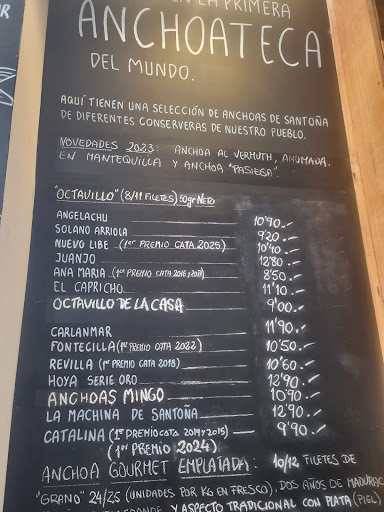 EN LA PRIMERA
ANCHOATECA
DEL MUNDO.
AQUÍ TIENEN UNA SELECCIÓN DE ANCHOAS DE SANTOÑA
DE DIFERENTES CONSERVERAS DE NUESTRO PUEBLO.
NOVEDADES 2023: ANCHOA AL VERMUTH, AHUMADA,
EN MANTEQUILLA Y ANCHOA "PASIEGA"
"OCTAVILLO" (8/11 FILETES) 50gr NETO
ANGELACHU 10'90.-
SOLANO ARRIOLA 9'20.-
NUEVO LIBE (1er PREMIO CATA 2025) 10'40.-
JUANJO 12'80.-
ANA MARIA (1er PREMIO CATA 2016 y 2017) 8'50.-
EL CAPRICHO 11'10.-
OCTAVILLO DE LA CASA 9'00.-
CARLANMAR 11'90.-
FONTECILLA (1er PREMIO CATA 2022) 10'50.-
REVILLA (1er PREMIO CATA 2018) 10'60.-
HOYA SERIE ORO 12'90.-
ANCHOAS MINGO 10'90.-
LA MACHINA DE SANTOÑA 12'90.-
CATALINA (1er PREMIO CATA 2014 y 2015) 9'90.-
(1er PREMIO 2024)
ANCHOA GOURMET EMPLATADA: 10/12 FILETES DE
"GRANO" 24/25 (UNIDADES POR KG EN FRESCO), DOS AÑOS DE MADURAC
GRANDE Y ASPECTO TRADICIONAL CON PLATA (PIEL)